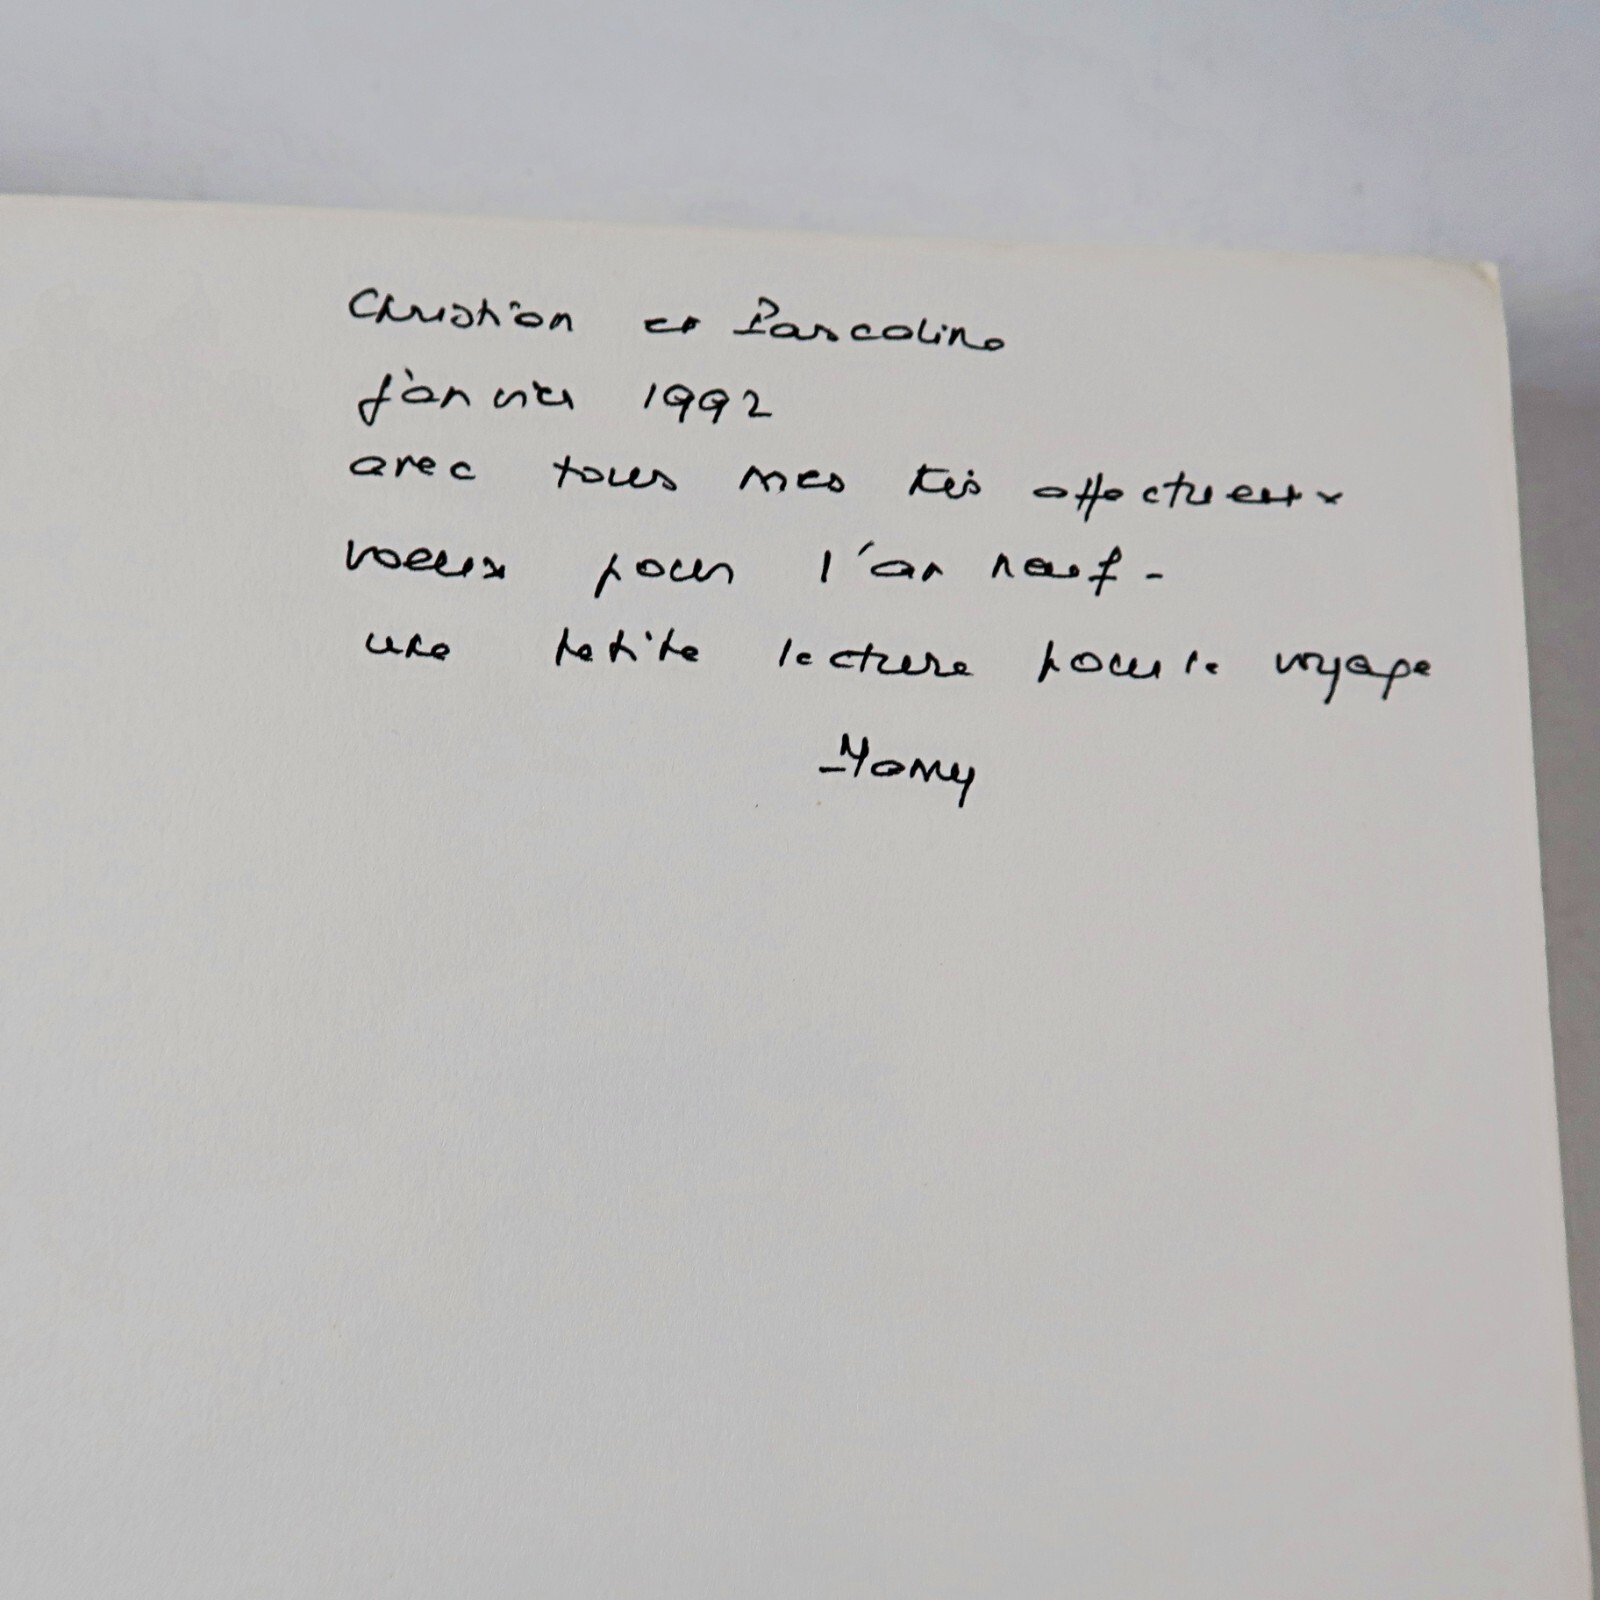 Christian et Pascaline
janvier 1992
avec tous mes très affectueux
voeux pour l'an neuf -
une petite lecture pour le voyage
Mamy